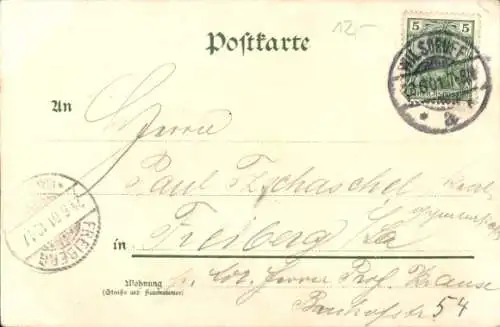 12,-
Postkarte
5 5
WILSDRUFF
An Herrn
Paul Tzschaschel
in Freiberg Sa
FREIBERG
Wohnung
(Straße und Hausnummer)
Herrn Prof. Krause
Bahnhofstr. 54